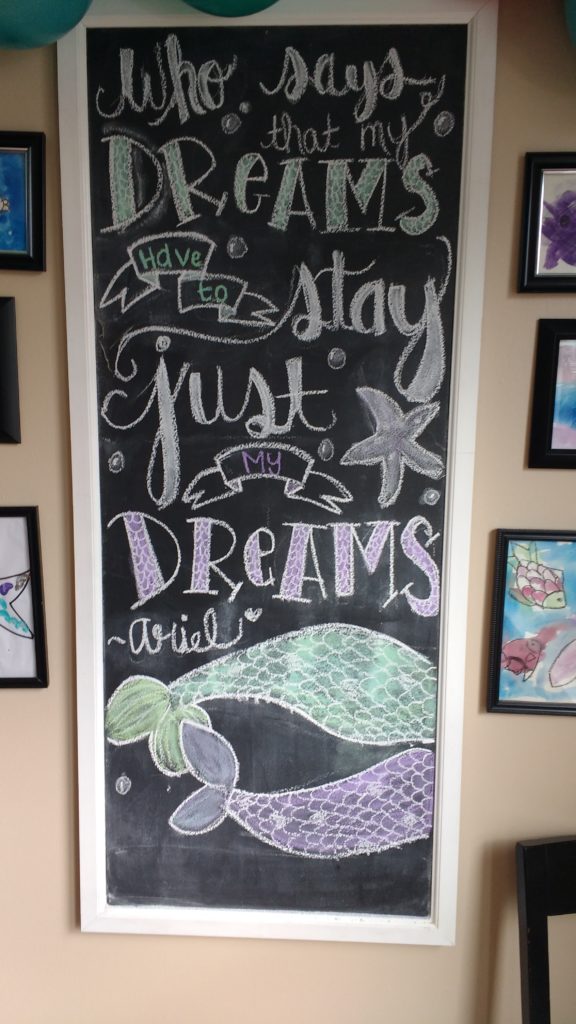 Who says
that my
DREAMS
Have
to
stay
just
MY
DREAMS
~ariel